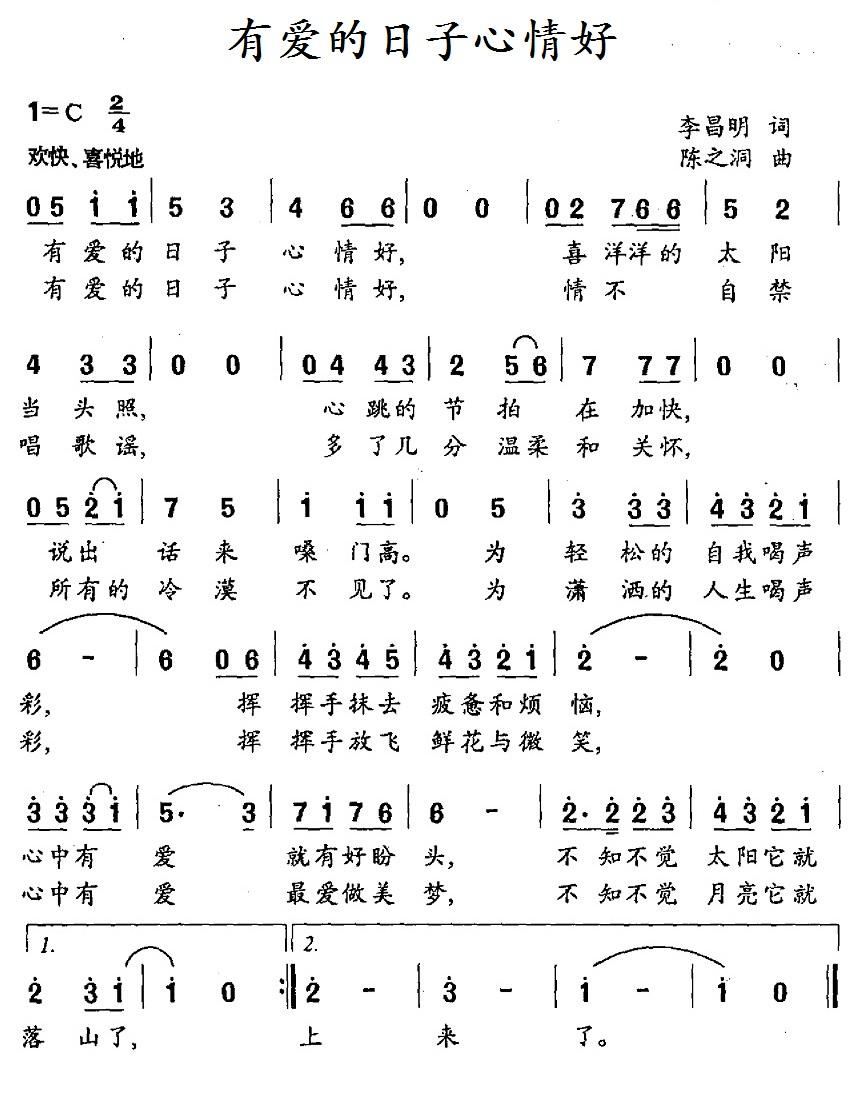 有爱的日子心情好
1=C 2/4
李昌明 词
欢快、喜悦地
陈之洞 曲
0 5 i i | 5 3 | 4 6 6 | 0 0 | 0 2 7 6 6 | 5 2
有爱的日子心情好,喜洋洋的太阳
有爱的日子心情好,情不自禁
4 3 3 | 0 0 | 0 4 4 3 | 2 5 6 | 7 7 7 | 0 0 |
当头照,心跳的节拍在加快,
唱歌谣,多了几分温柔和关怀,
0 5 2̇ i | 7 5 | i i i | 0 5 | 3̇ 3̇ 3̇ | 4̇ 3̇ 2̇ i |
说出话来嗓门高。为轻松的自我喝声
所有的冷漠不见了。为潇洒的人生喝声
6 - | 6 0 6 | 4̇ 3̇ 4̇ 5̇ | 4̇ 3̇ 2̇ i | 2̇ - | 2̇ 0 |
彩,挥挥手抹去疲惫和烦恼,
彩,挥挥手放飞鲜花与微笑,
3̇ 3̇ 3̇ i | 5̇· 3̇ | 7 i 7 6 | 6 - | 2̇· 2̇ 2̇ 3̇ | 4̇ 3̇ 2̇ i |
心中有爱就有好盼头,不知不觉太阳它就
心中有爱最爱做美梦,不知不觉月亮它就
1. 2.
2̇ 3̇ i | i 0 :‖ 2̇ - | 3̇ - | i - | i 0 ‖
落山了,上来了。